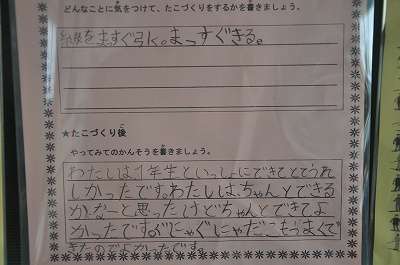 どんなことに気をつけて、たこづくりをするかを書きましょう。
線をますぐ引く。まっすぐきる。
★たこづくり後
やってみてのかんそうを書きましょう。
わたしは1年生といっしょにできてとてもうれ
しかったです。わたしは、ちゃんとできる
かなーと思ったけどちゃんとできてよ
かったです。ぐにゃぐにゃだこもうまくで
きたのでよかったです。